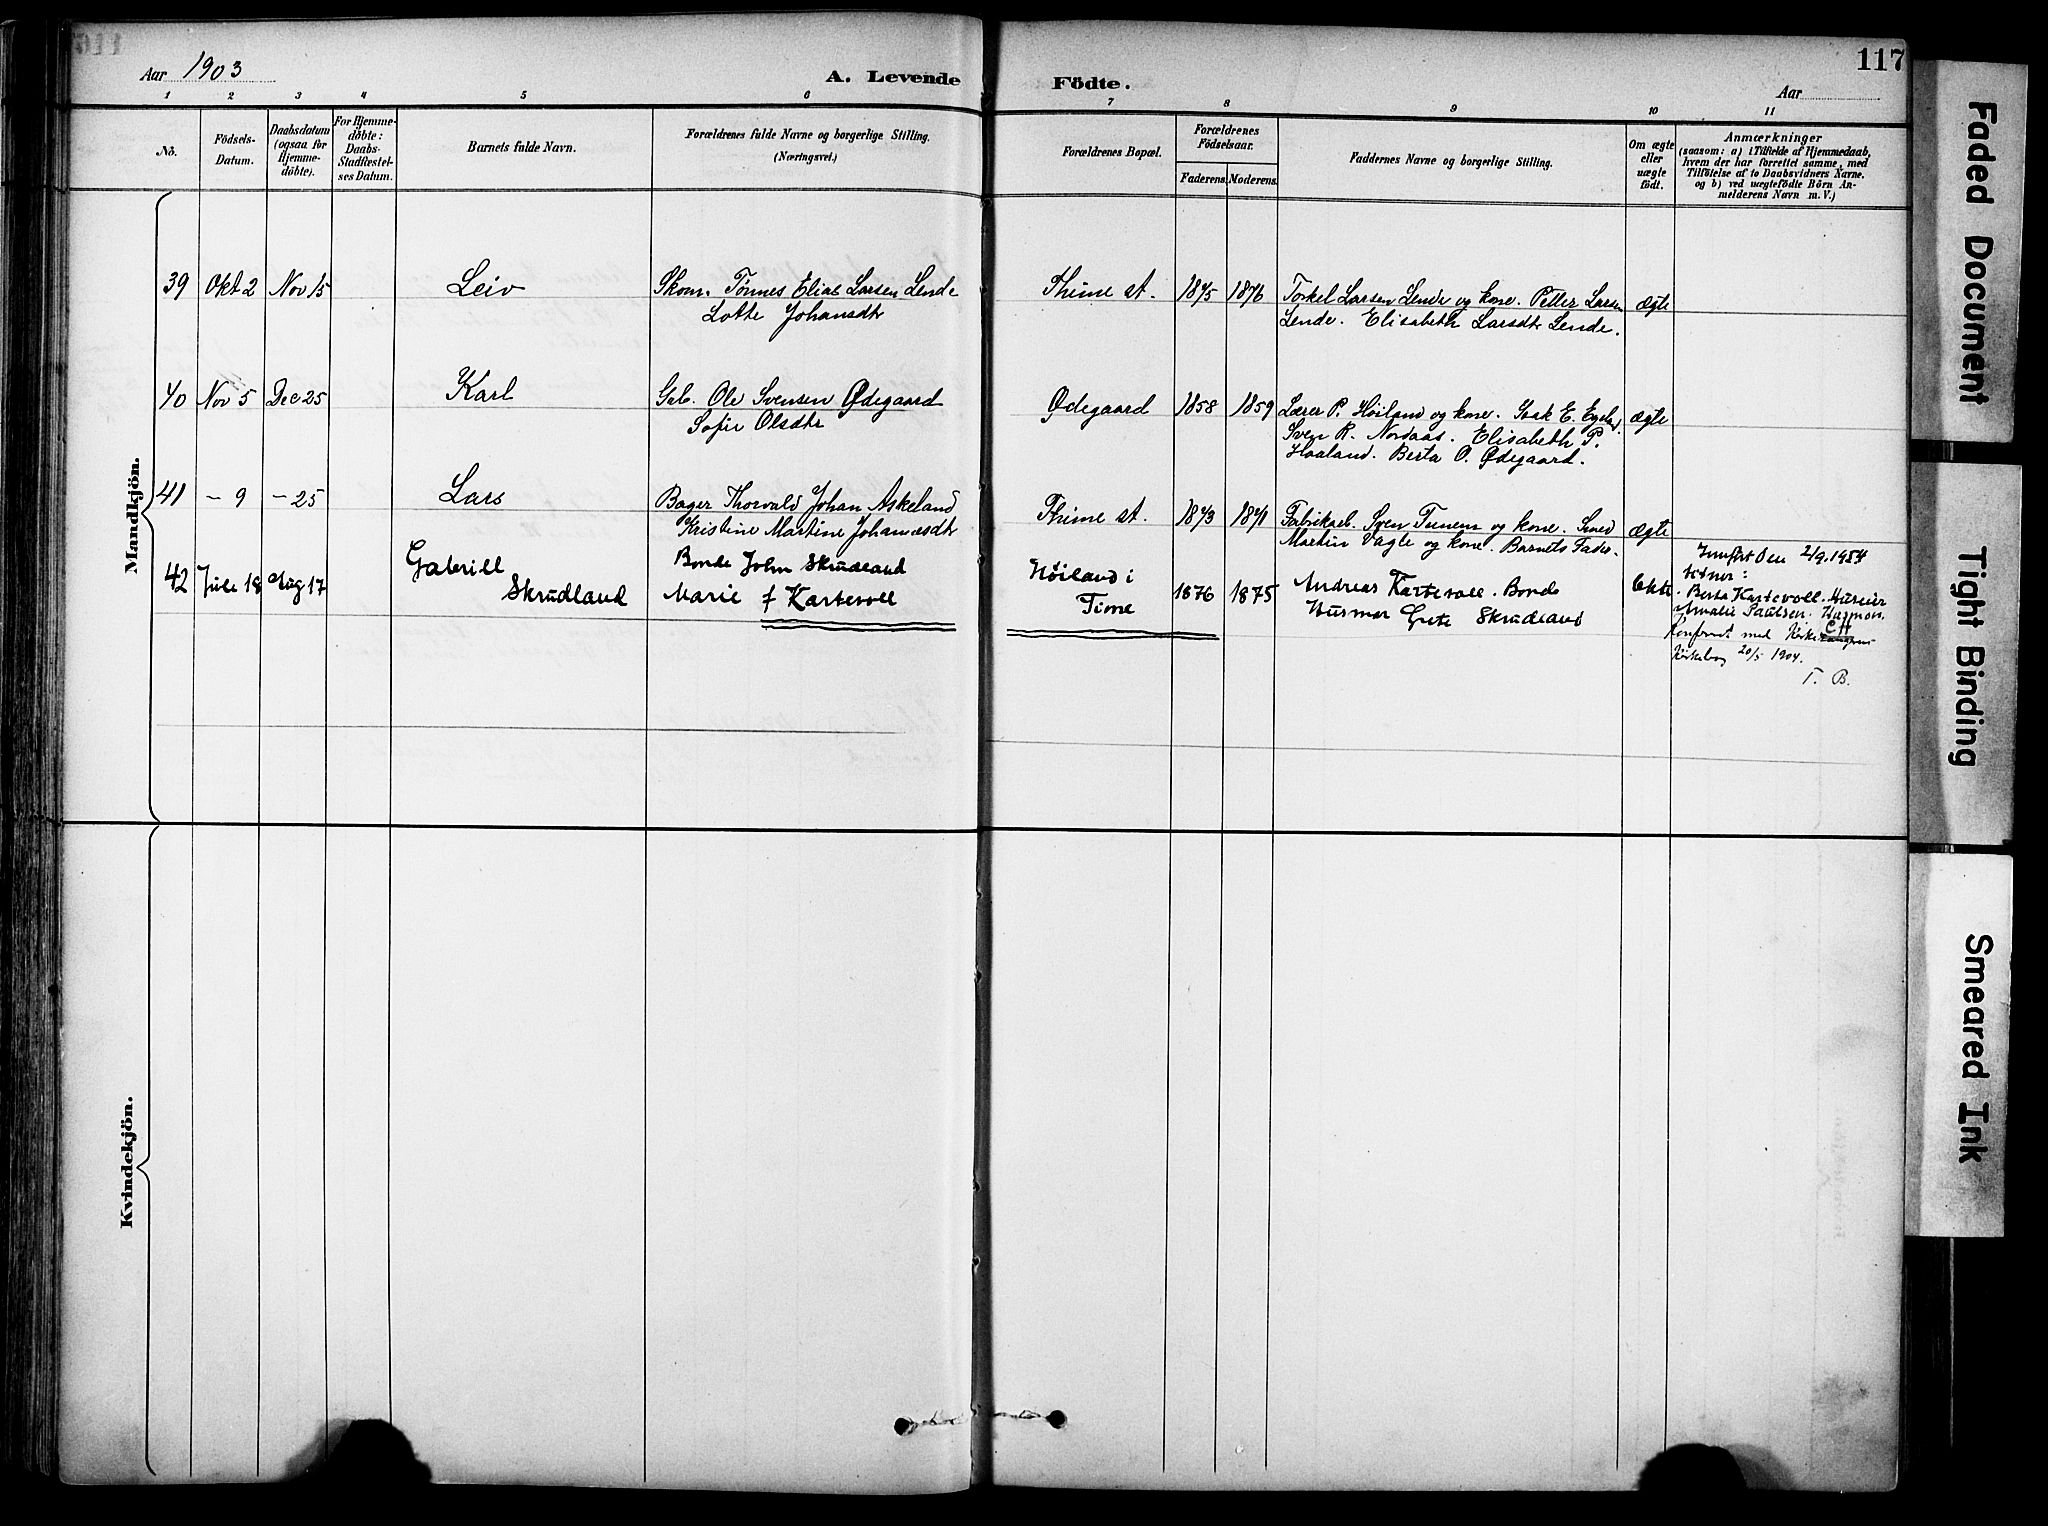 117
Aar 1903
A. Levende Födte.
Aar
1 2 3 4 5 6 7 8 9 10 11
No.
Födsels-
Datum.
Daabsdatum
(ogsaa for
Hjemme-
döbte).
For Hjemme-
döbte:
Daabs-
Stadfæstel-
ses Datum.
Barnets fulde Navn.
Forældrenes fulde Navne og borgerlige Stilling.
(Næringsvei.)
Forældrenes Bopæl.
Forældrenes
Födselsaar.
Faderens. Moderens.
Faddernes Navne og borgerlige Stilling.
Om ægte
eller
uægte
födt.
Anmærkninger
(saasom: a) i Tilfælde af Hjemmedaab,
hvem der har forrettet samme, med
Tilföielse af to Daabsvidners Navne.
og b) ved uægtefödte Börn An-
melderens Navn m. V.)
Mandkjön.
39 Okt 2 Nov 15 Leiv Skom. Tönnes Elias Larsen Lende
Lotte Johansdtr
Thime st. 1875 1876 Torkel Larsen Lende og kone. Petter Larsen
Lende. Elisabeth Larsdtr Lende.
ægte
40 Nov 5 Dec 25 Karl Gab. Ole Svensen Ødegaard
Sofie Olsdtr
Ødegaard 1858 1859 Lærer P. Höiland og kone. Isak E. Egeland.
Sven R. Nordaas. Elisabeth P.
Haaland. Berta O. Ødegaard.
ægte
41 - 9 - 25 Lars Bager Thorvald Johan Askeland
Kristine Martine Johannesdtr
Thime st. 1873 1871 Fabrikarb. Sven Tunem og kone. Smed
Martin Vagle og kone. Barnets Fader.
ægte
42 Jule 18 Aug 17 Gabriell
Skrudland
Bonde John Skrudland
Marie f Kartevoll
Höiland i
Time
1876 1875 Andreas Kartevoll. Bonde
Husmor Grete Skrudland
Ekte
Innfört den 2/9.1954
Berta Kartevoll. Huseier
Amalie Paulsen. Husmor.
Konferert med
Kirkebog 20/5 1904.
T. B.
Kvindekjön.
Faded Document
Tight Binding
Smeared Ink